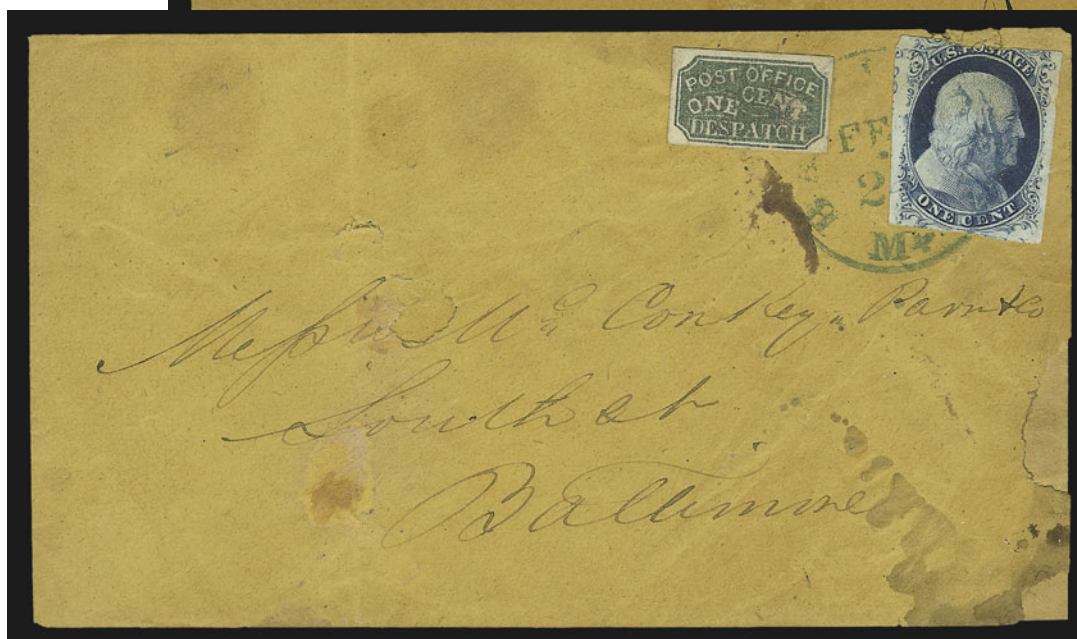 POST OFFICE
ONE CENT
DESPATCH
U.S. POSTAGE
ONE CENT
FE
2
B
Md
Messrs Mc Conkey, Parr & Co
South st
Baltimore